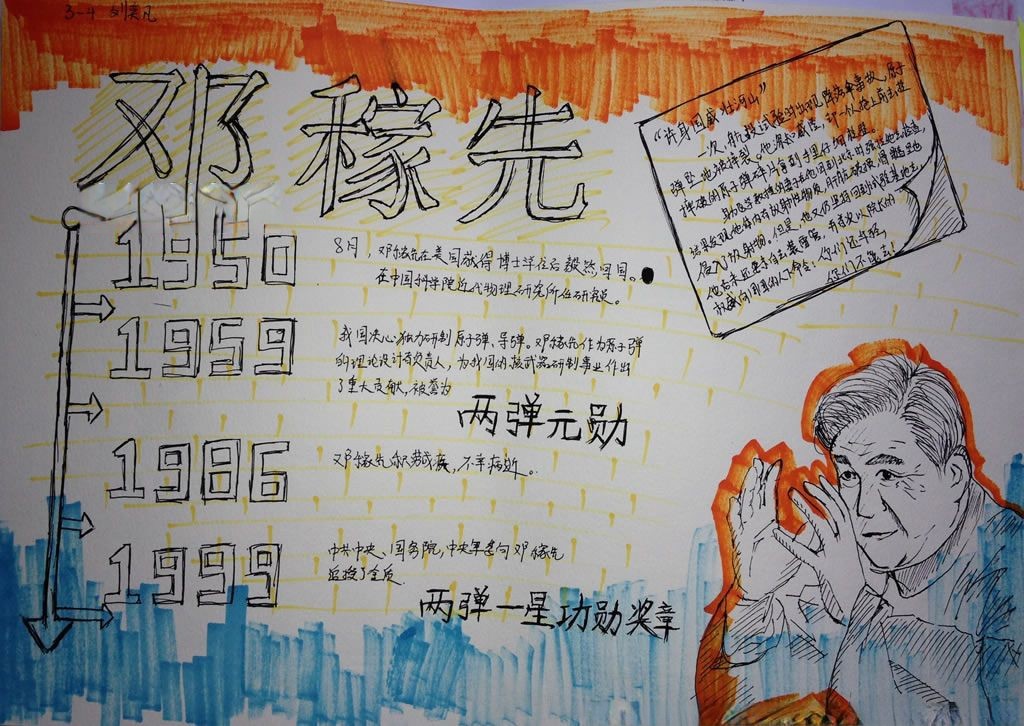 3-4 刘昊凡
邓稼先
“许身国威壮河山”
一次，航投试验时出现降落伞事故，原子
弹坠地被摔裂。他深知危险，却一个人抢上前去把
摔破的原子弹碎片拿到手里仔细检验。
身为医学教授的妻子
在他回到北京时强拉他去检查，
结果发现
他后来还要
你们还年轻，
你们不能去！
1950
8月，邓稼先在美国获得博士学位后毅然回国。
在中国科学院近代物理研究所任研究员。
1959
我国决心独力研制原子弹、导弹。邓稼先作为原子弹
的理论设计负责人，为我国的核武器研制事业作出
了重大贡献，被誉为
两弹元勋
1986
邓稼先积劳成疾，不幸病逝。
1999
中共中央、国务院，中央军委向邓稼先
追授了金质
两弹一星功勋奖章